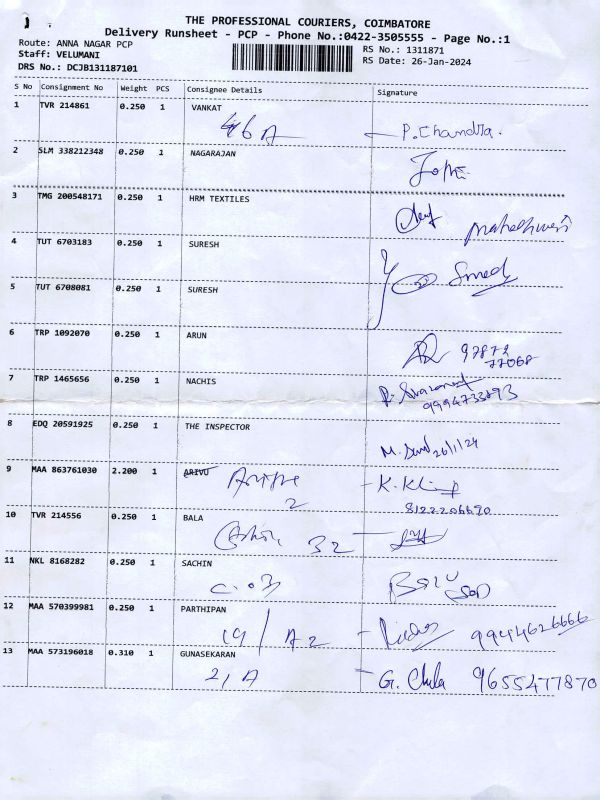 THE PROFESSIONAL COURIERS, COIMBATORE
Delivery Runsheet - PCP - Phone No.:0422-3505555 - Page No.:1
Route: ANNA NAGAR PCP RS No.: 1311871
Staff: VELUMANI RS Date: 26-Jan-2024
DRS No.: DCJB131187101
S No Consignment No Weight PCS Consignee Details Signature
1 TVR 214861 0.250 1 VANKAT
46 A P. Chandra.
2 SLM 338212348 0.250 1 NAGARAJAN
3 TMG 200548171 0.250 1 HRM TEXTILES
Maheshwari
4 TUT 6703183 0.250 1 SURESH
5 TUT 6708081 0.250 1 SURESH
6 TRP 1092070 0.250 1 ARUN
97872
77068
7 TRP 1465656 0.250 1 NACHIS
9994733893
8 EDQ 20591925 0.250 1 THE INSPECTOR
26/1/24
9 MAA 863761030 2.200 1 ARIVU
2 8122206690
10 TVR 214556 0.250 1 BALA
32
11 NKL 8168282 0.250 1 SACHIN
12 MAA 570399981 0.250 1 PARTHIPAN
19 / A2 9944626666
13 MAA 573196018 0.310 1 GUNASEKARAN
21 A G. Chila 9655477870